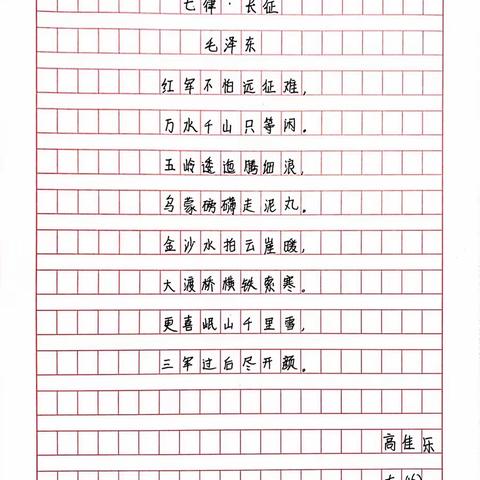 七律·长征
毛泽东
红军不怕远征难，
万水千山只等闲。
五岭逶迤腾细浪，
乌蒙磅礴走泥丸。
金沙水拍云崖暖，
大渡桥横铁索寒。
更喜岷山千里雪，
三军过后尽开颜。
高佳乐